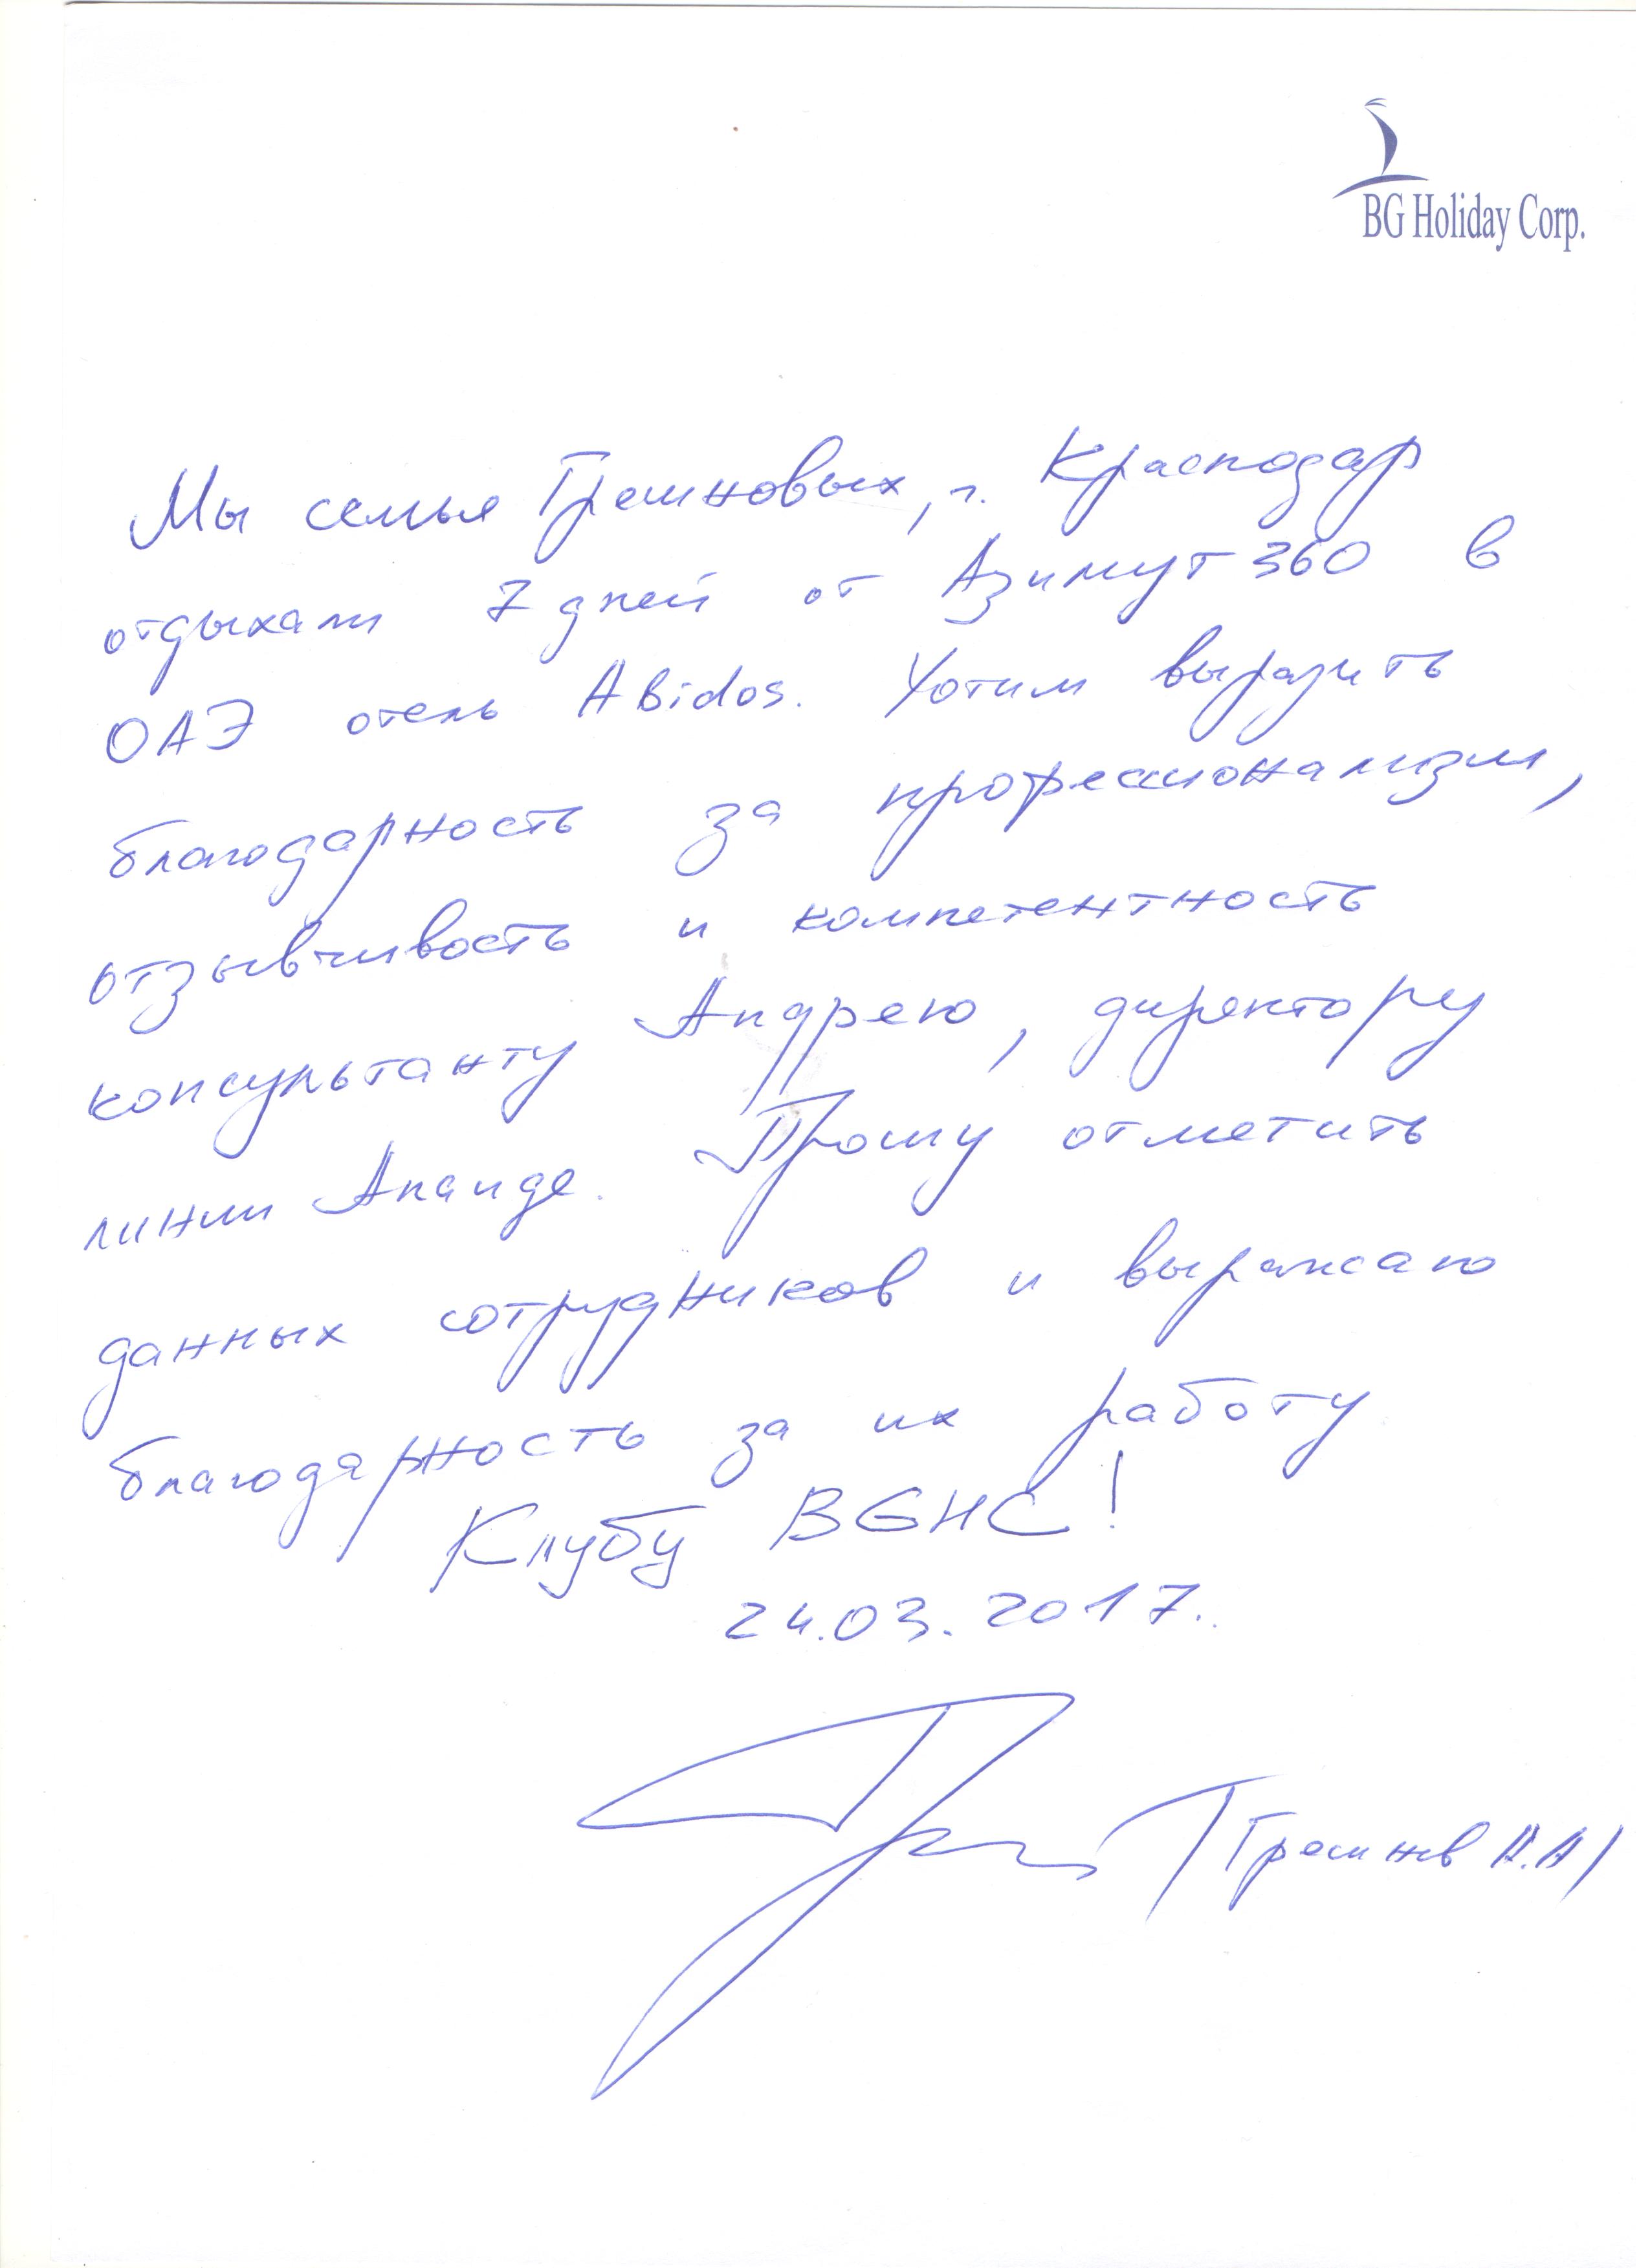 BG Holiday Corp.
Мы семья Грешновых, г. Краснодар
отдыхали 7 дней от Азимут 360 в
ОАЭ отель Abidos. Хотим выразить
благодарность за профессионализм,
отзывчивость и компетентность
консультанту Андрею, директору
линии Анаиде. Прошу отметить
данных сотрудников и выражаю
благодарность за их работу
Клубу BGHC!
24.03.2017.